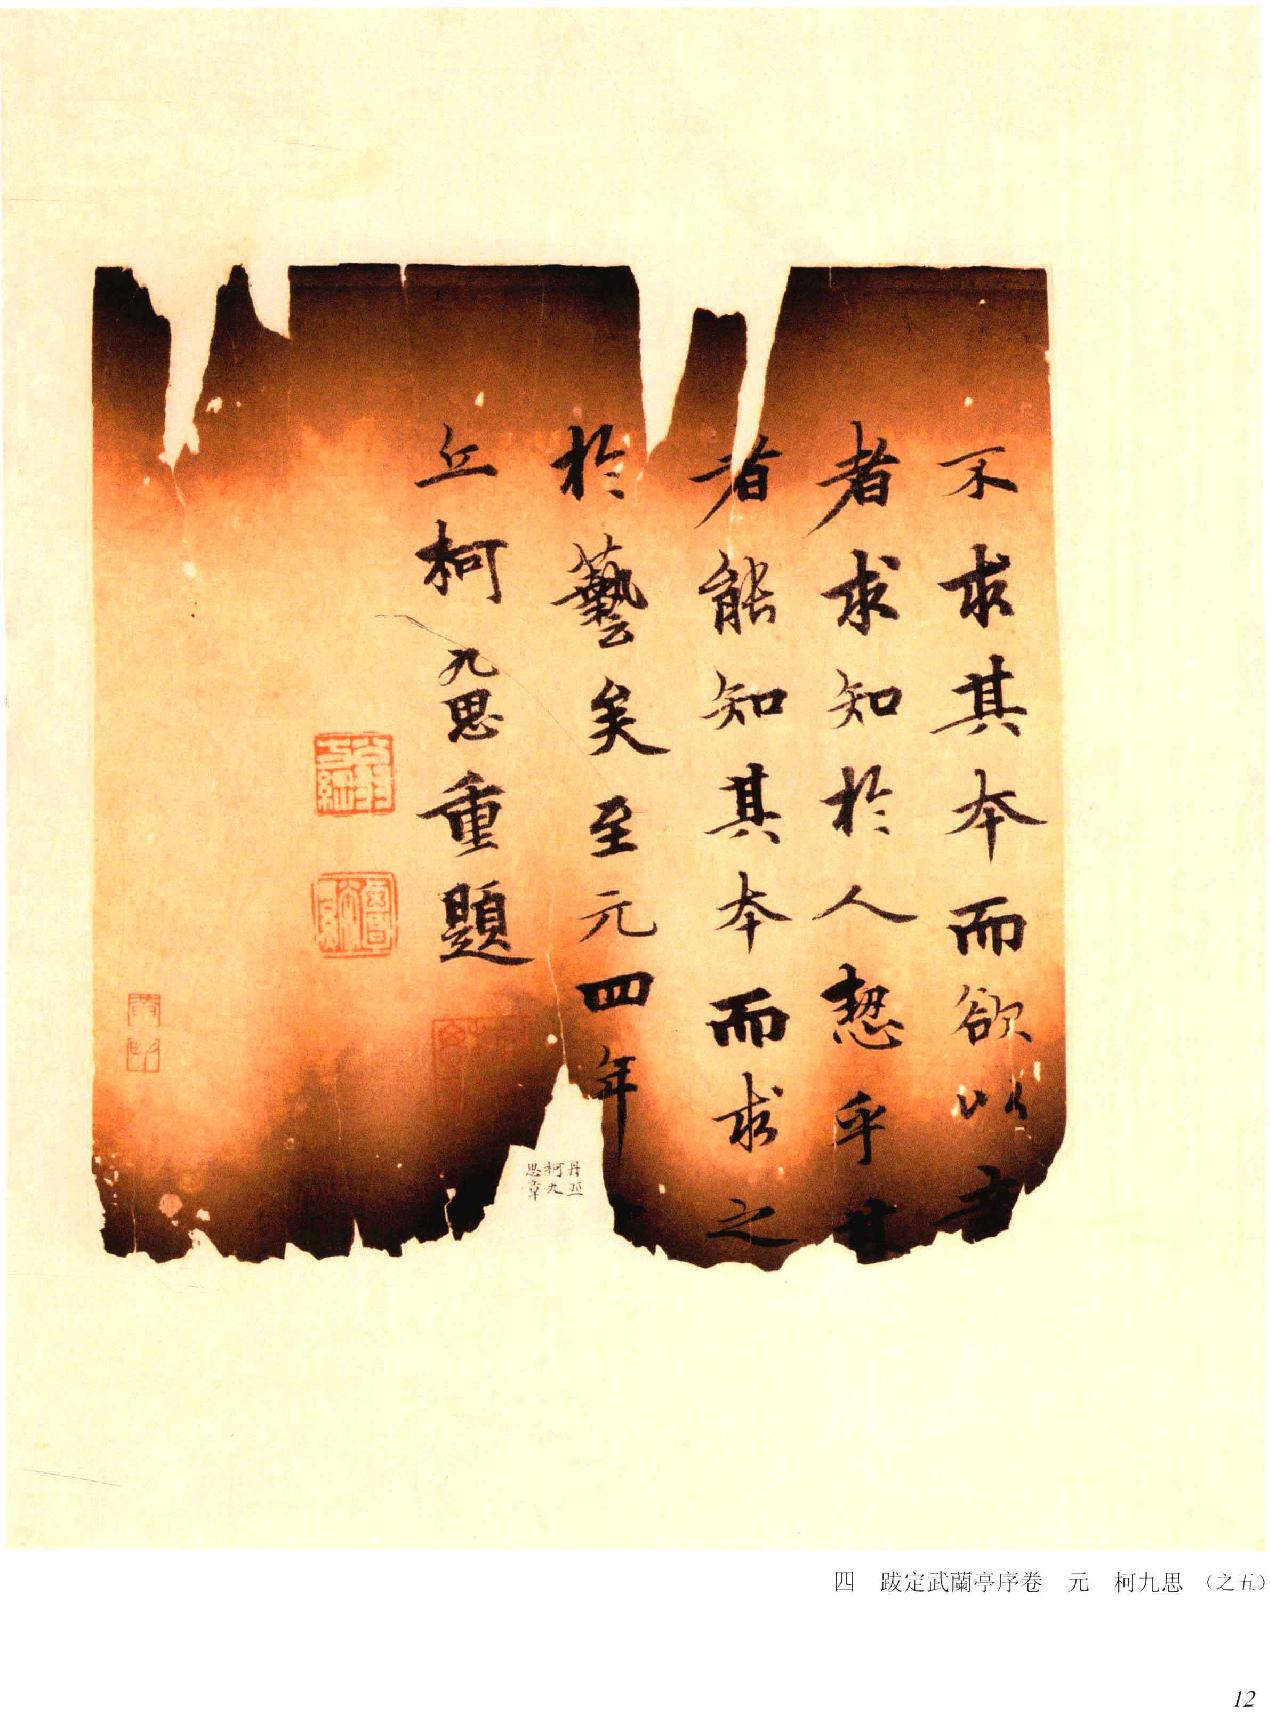 不求其本而欲以
者求知於人 乎
者能知其本而求之
於藝矣至元四年
丘柯九思重題
丹丘
柯九
思章
四 跋定武蘭亭序卷 元 柯九思 （之五）
12